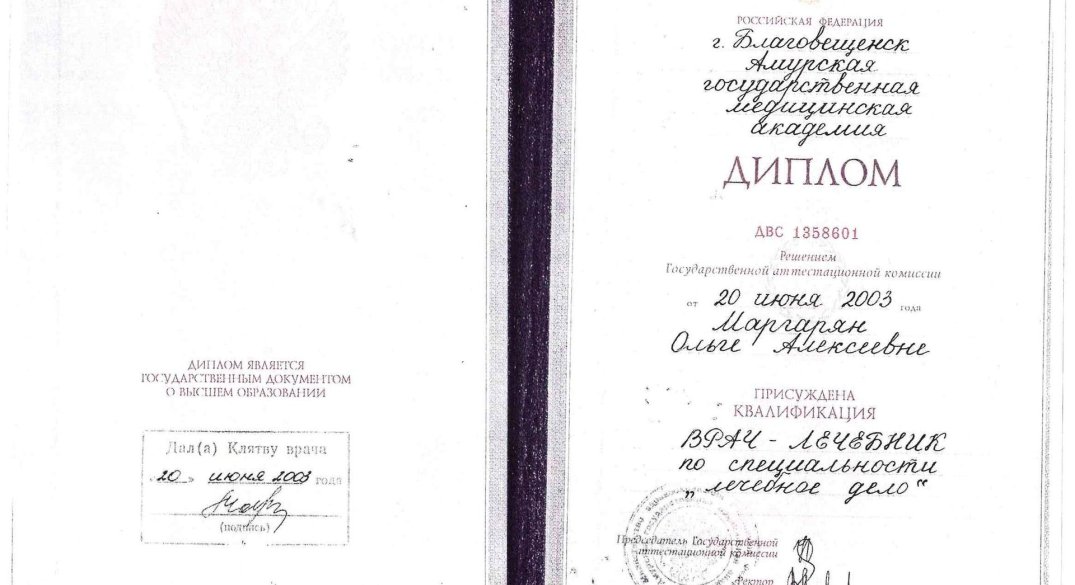 ДИПЛОМ ЯВЛЯЕТСЯ
ГОСУДАРСТВЕННЫМ ДОКУМЕНТОМ
О ВЫСШЕМ ОБРАЗОВАНИИ
Дал(а) Клятву врача
«20» июня 2003 года
(подпись)
РОССИЙСКАЯ ФЕДЕРАЦИЯ
г. Благовещенск
Амурская
государственная
медицинская
академия
ДИПЛОМ
ДВС 1358601
Решением
Государственной аттестационной комиссии
от 20 июня 2003 года
Маргарян
Ольге Алексеевне
ПРИСУЖДЕНА
КВАЛИФИКАЦИЯ
ВРАЧ - ЛЕЧЕБНИК
по специальности
„лечебное дело“
Председатель Государственной
аттестационной комиссии
Ректор